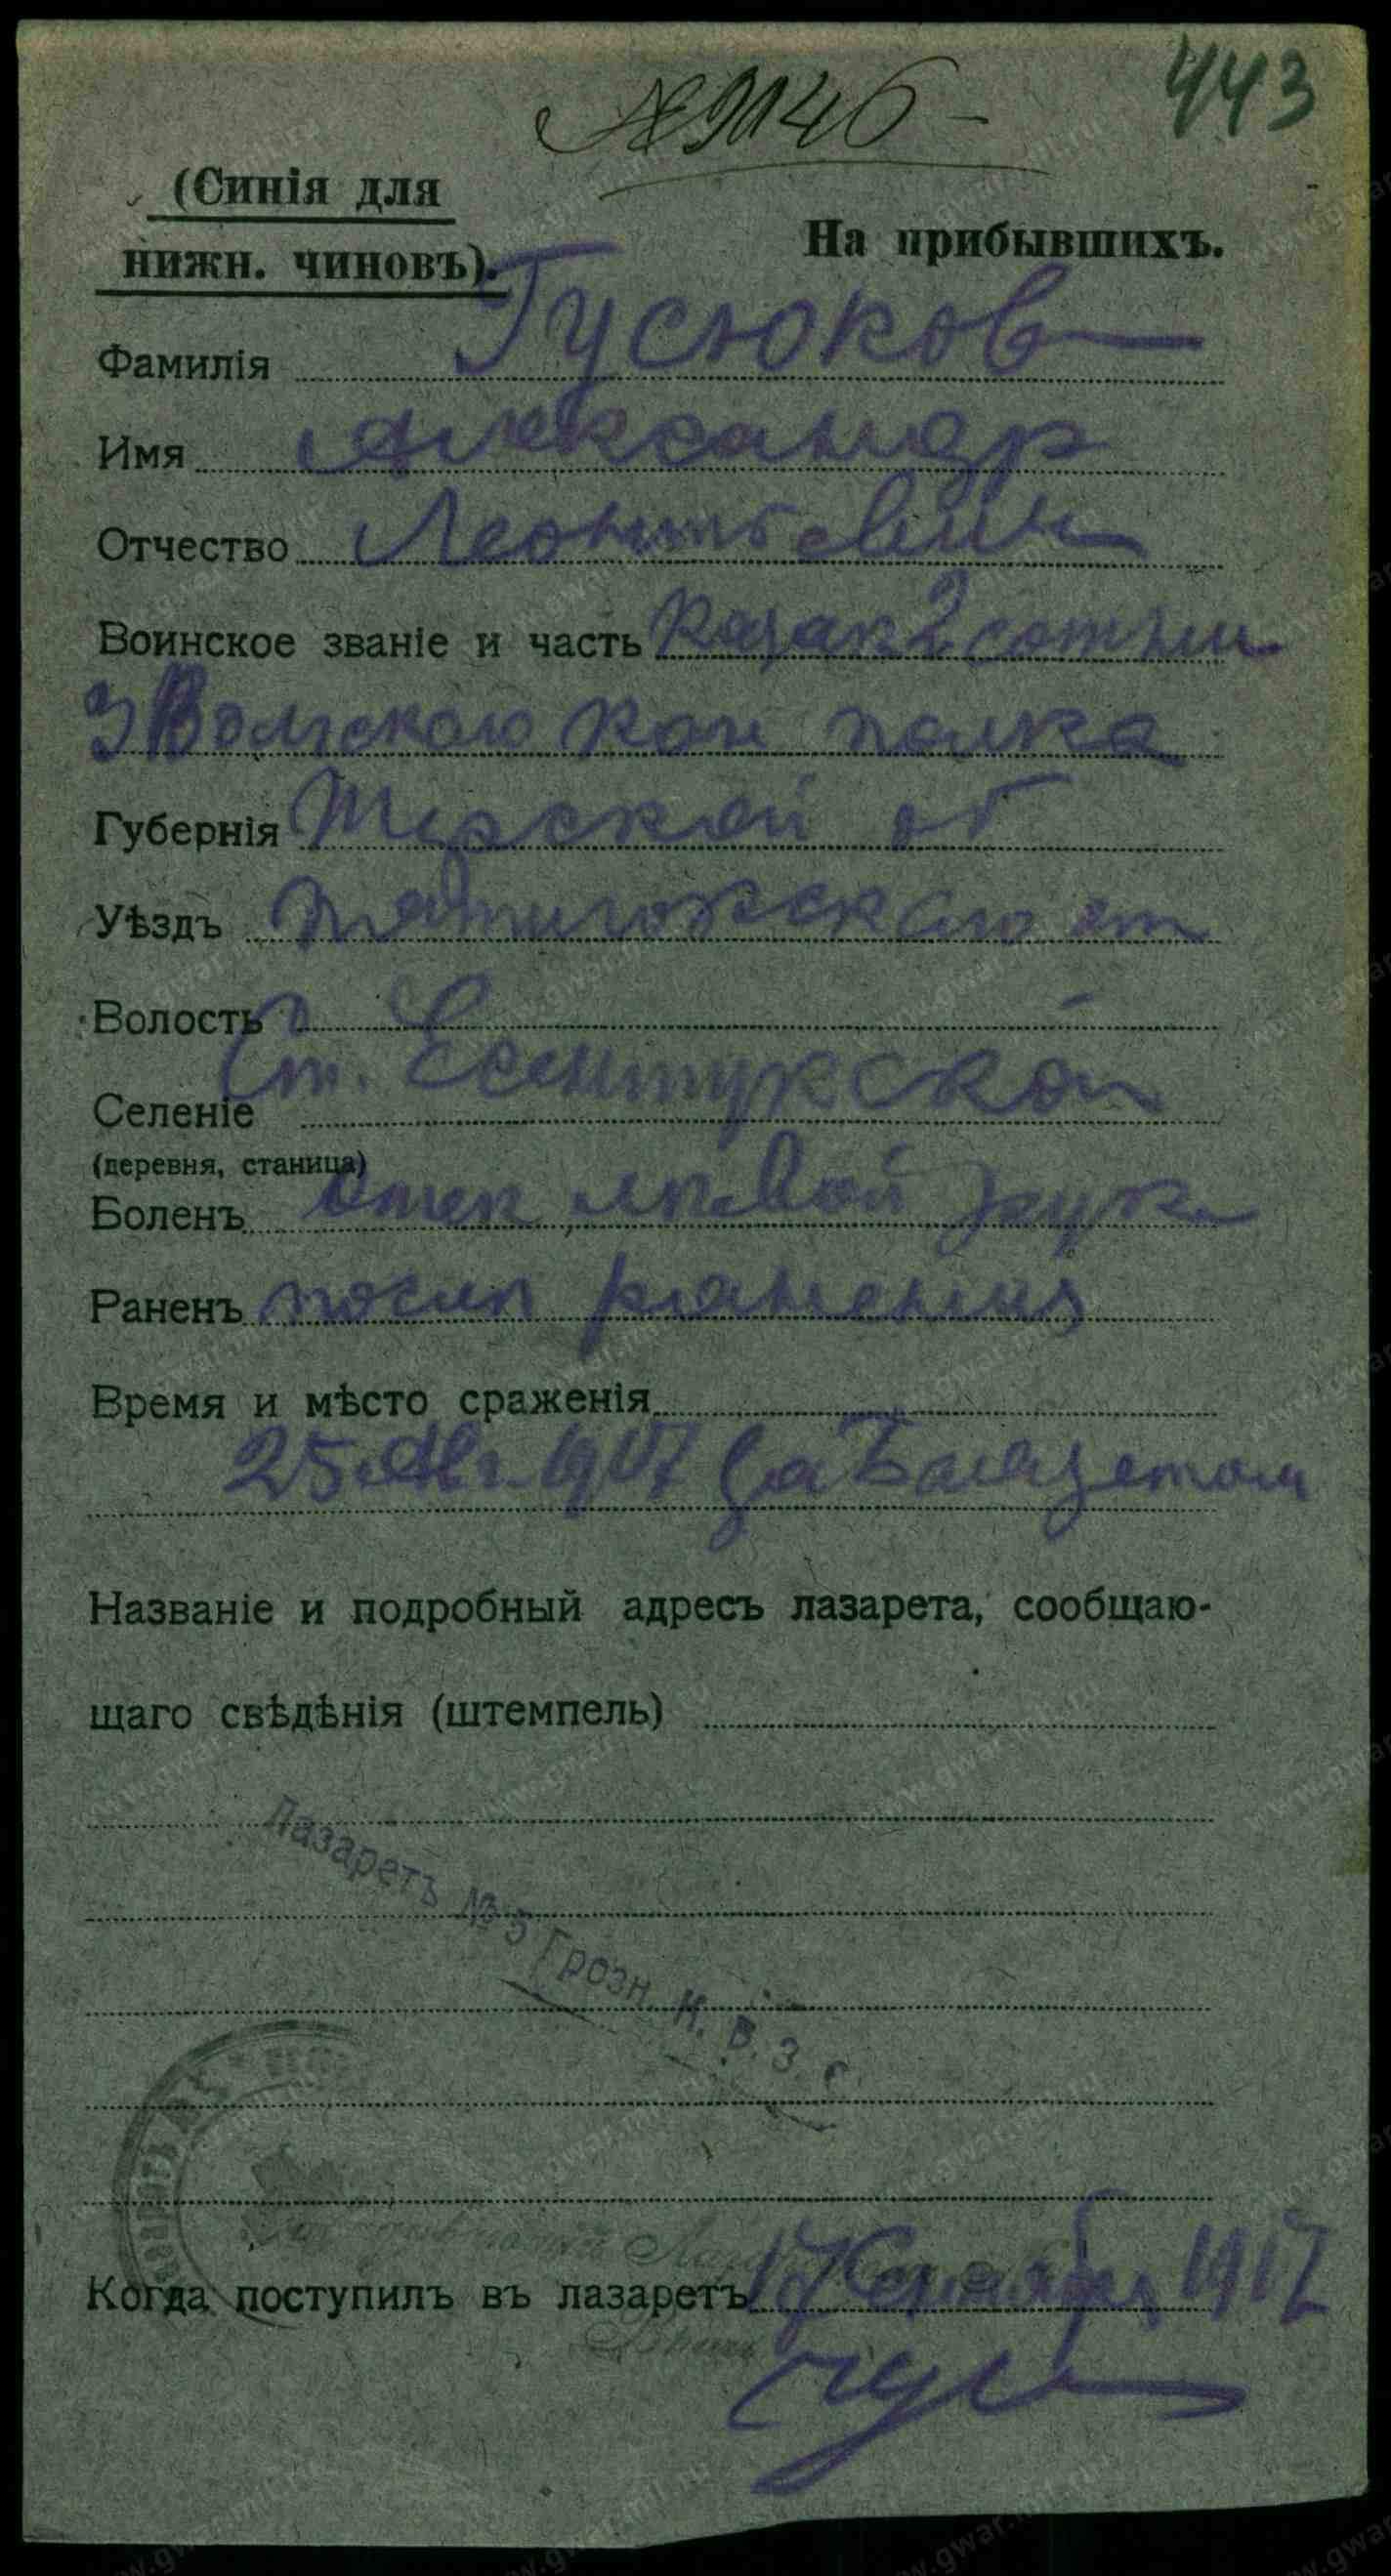 443
№ 9146 -
(Синія для
нижн. чиновъ).
На прибывшихъ.
Фамилія Гусюков
Имя Александр
Отчество Леонтьевич
Воинское званіе и часть Казак 2 сотни
3 Волгского каз полка
Губернія Терской об
Уѣздъ Пятигорского от
Волость
Селеніе Ст. Ессентукской
(деревня, станица)
Боленъ отек правой руки
Раненъ посли ранения
Время и мѣсто сраженія
25 Авг. 1917 за Баязетом
Названіе и подробный адресъ лазарета, сообщаю-
щаго свѣдѣнія (штемпель)
Лазаретъ № 3 Грозн. К. В. З. С.
Когда поступилъ въ лазаретъ 17 Сентября 1917